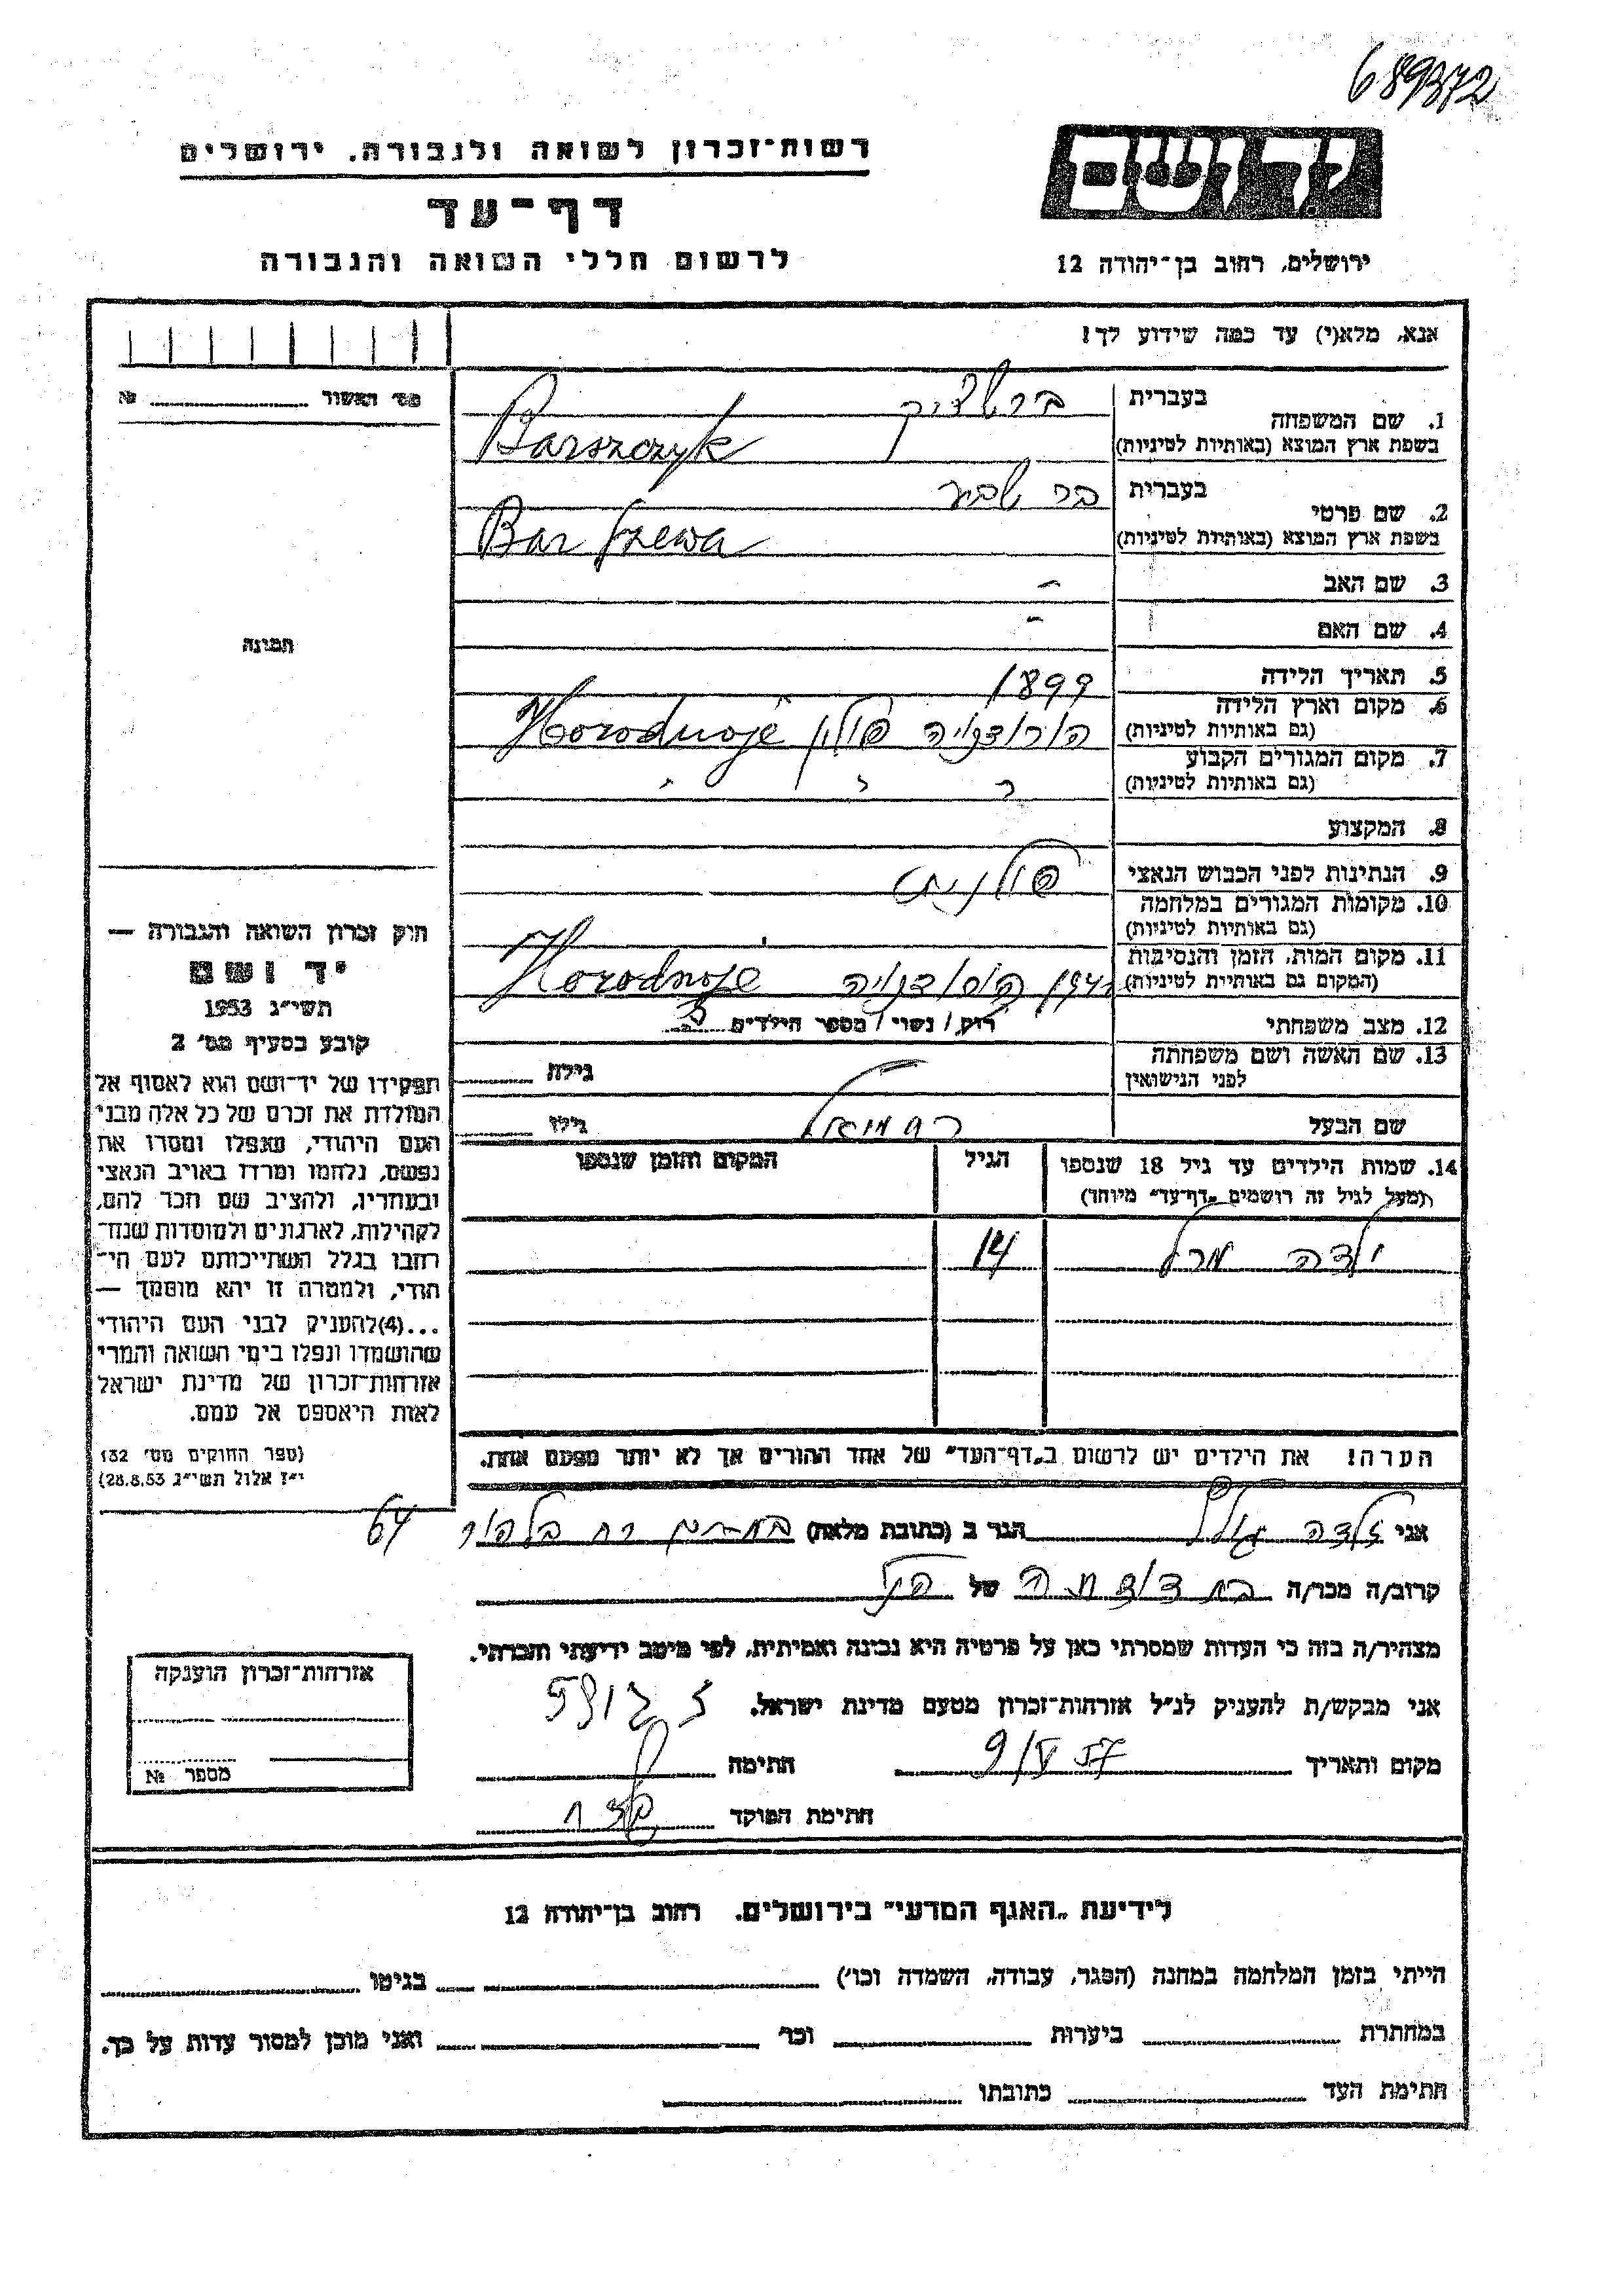 689372
רשות-זכרון לשואה ולגבורה. ירושלים
יד ושם
דף-עד
לרשום חללי השואה והגבורה
ירושלים, רחוב בן-יהודה 12
אנא, מלא(י) עד כמה שידוע לך!
מס' האשור № 
1. שם המשפחה בעברית ברשציק
בשפת ארץ המוצא (באותיות לטיניות) Barszczyk
2. שם פרטי בעברית בר שבע
בשפת ארץ המוצא (באותיות לטיניות) Bar Szewa
3. שם האב -
4. שם האם -
תמונה
5. תאריך הלידה 1899
6. מקום וארץ הלידה (גם באותיות לטיניות) הורודנויה פולין Horodnoje
7. מקום המגורים הקבוע (גם באותיות לטיניות) " " "
8. המקצוע
9. הנתינות לפני הכבוש הנאצי פולנית
10. מקומות המגורים במלחמה (גם באותיות לטיניות)
11. מקום המות, הזמן והנסיבות (המקום גם באותיות לטיניות) הורודנויה Horodnoje
12. מצב משפחתי רווק / נשוי / מספר הילדים
13. שם האשה ושם משפחתה לפני הנישואין גילה
שם הבעל ירחמיאל גילו
חוק זכרון השואה והגבורה —
יד ושם
תשי"ג 1953
קובע בסעיף מס' 2
תפקידו של יד-ושם הוא לאסוף אל
המולדת את זכרם של כל אלה מבני
העם היהודי, שנפלו ומסרו את
נפשם, נלחמו ומרדו באויב הנאצי
ובעוזריו, ולהציב שם וזכר להם,
לקהילות, לארגונים ולמוסדות שנח-
רבו בגלל השתייכותם לעם הי-
הודי, ולמטרה זו יהא מוסמך —
...(4)להעניק לבני העם היהודי
שהושמדו ונפלו בימי השואה והמרי
אזרחות-זכרון של מדינת ישראל
לאות היאספם אל עמם.
(ספר החוקים מס' 132
י"ז אלול תשי"ג 28.8.53)
14. שמות הילדים עד גיל 18 שנספו הגיל המקום והזמן שנספו
(מעל לגיל זה רושמים "דף-עד" מיוחד)
ילדה מרל 14
הערה! את הילדים יש לרשום ב"דף-העד" של אחד ההורים אך לא יותר מפעם אחת.
אני זלדה הגר ב (כתובת מלאה) 64
קרוב/ה מכר/ה בת דודתה של הנ"ל
מצהיר/ה בזה כי העדות שמסרתי כאן על פרטיה היא נכונה ואמיתית, לפי מיטב ידיעתי והכרתי.
אני מבקש/ת להעניק לנ"ל אזרחות-זכרון מטעם מדינת ישראל.
מקום ותאריך 9/V 57 חתימה
חתימת הפוקד
אזרחות-זכרון הוענקה
מספר №
לידיעת "האגף המדעי" בירושלים. רחוב בן-יהודה 12
הייתי בזמן המלחמה במחנה (הסגר, עבודה, השמדה וכו') בגיטו
במחתרת ביערות וכו' ואני מוכן למסור עדות על כך.
חתימת העד כתובתו